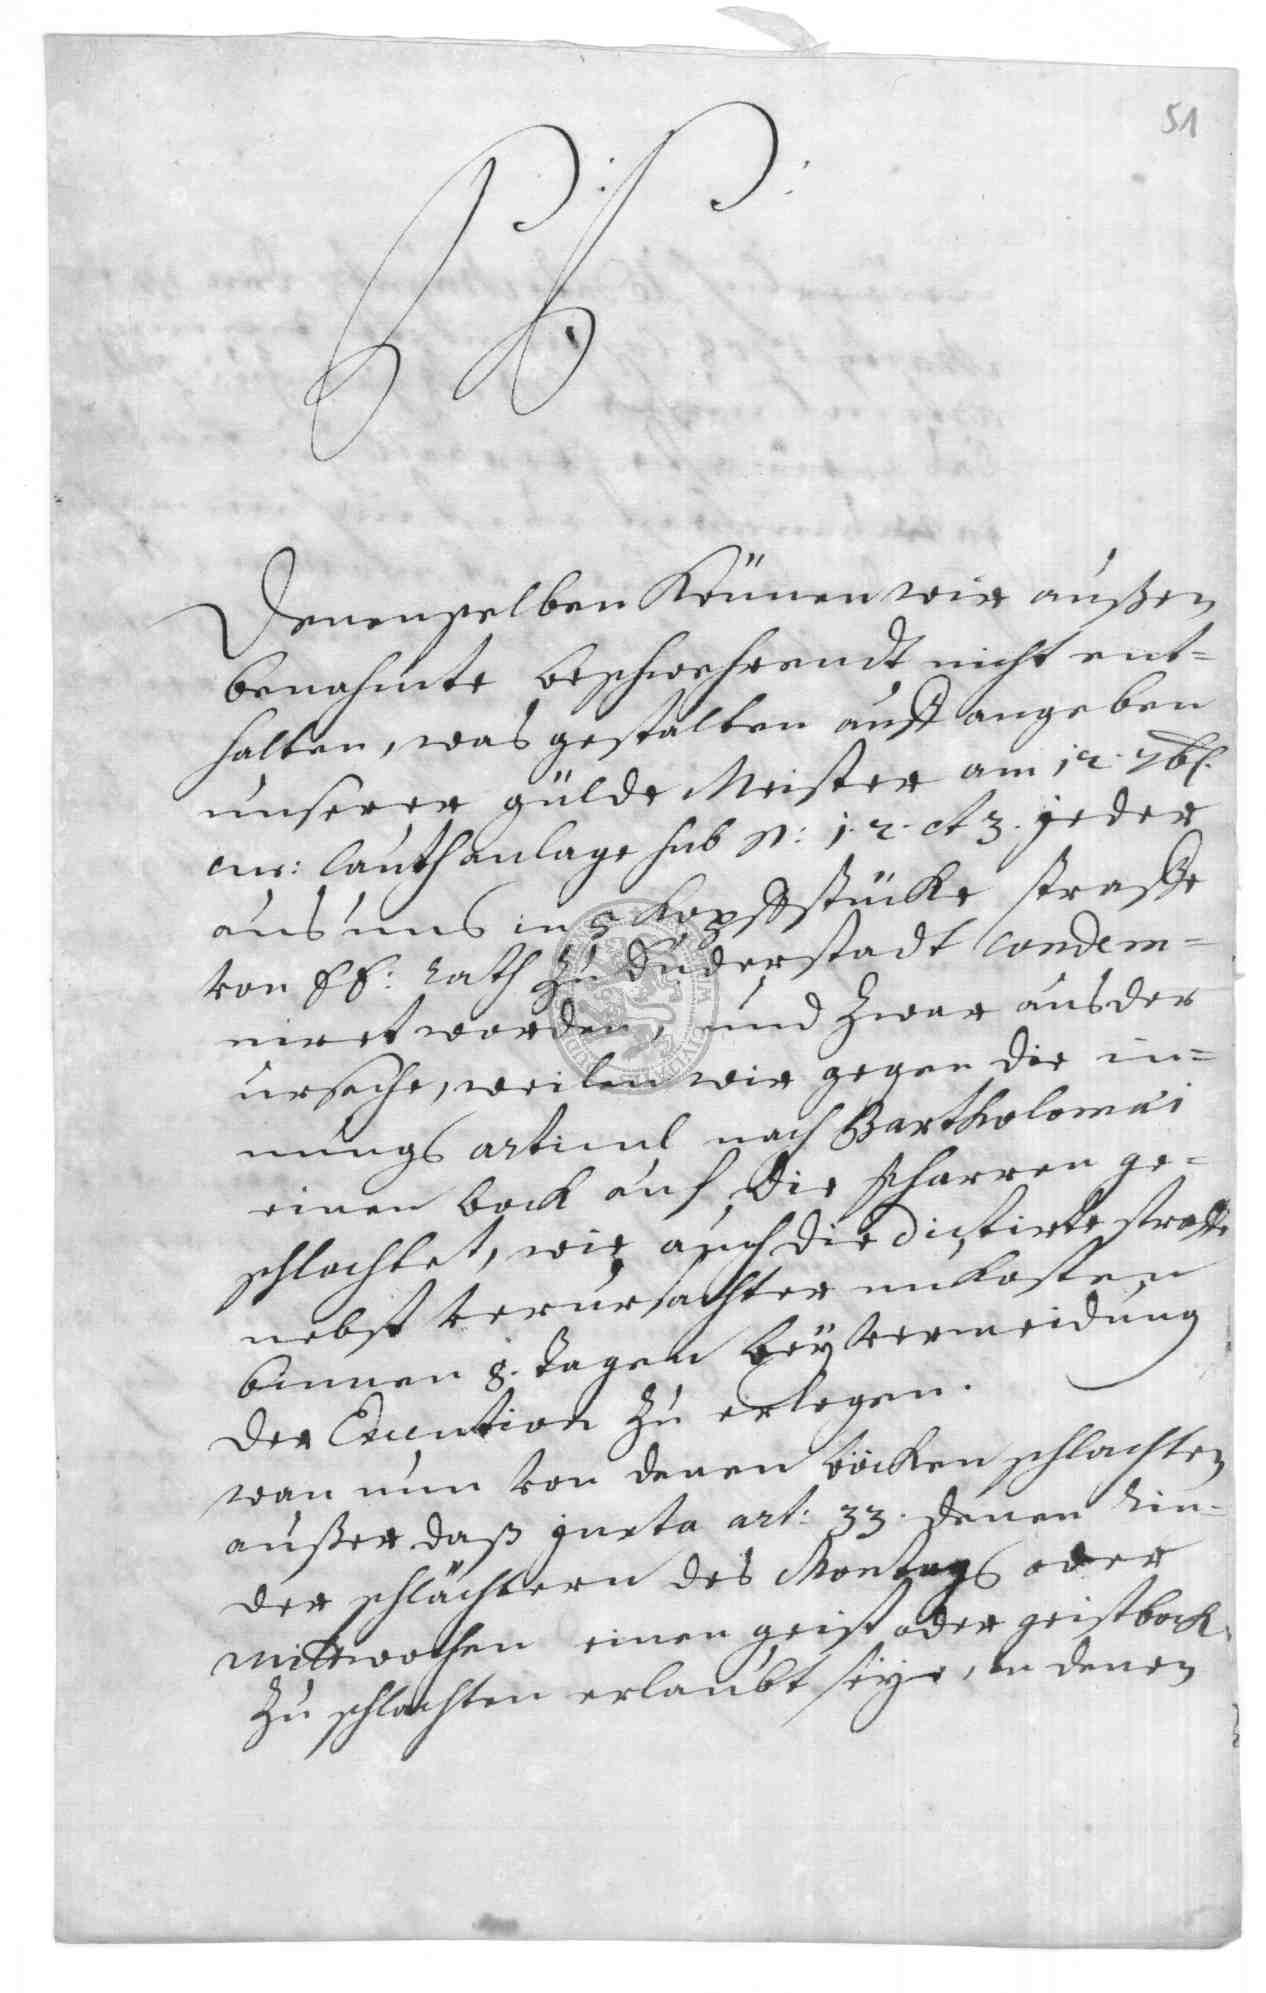 51
P: P:
Denenselben können wir außen
benahmte beschwehrendt nicht ent=
halten, was gestalten auff angeben
unserer gülde Meister am 12. 7br.
cur: lauth anlage sub N: 1. 2. et 3. jeder
aus uns in 5 Kopffstücke straffe
von Ss: rath zu Duderstadt condem=
niret worden, und zwar aus der
ursache, weilen wir gegen die in=
nungs articul nach Bartholomäi
einen bock auf die scharren ge=
schlachtet, wie auch die dictirte straffe
nebst verursachter unkosten
binnen 8. tagen bey vermeidung
der Execution zu erlegen.
wan nun von denen böcken schlachten
außer daß juxta art: 33. denen Rin=
der schlächtern des Montags oder
mittwochen einen geist oder geistbock
zu schlachten erlaubt seye, in denen